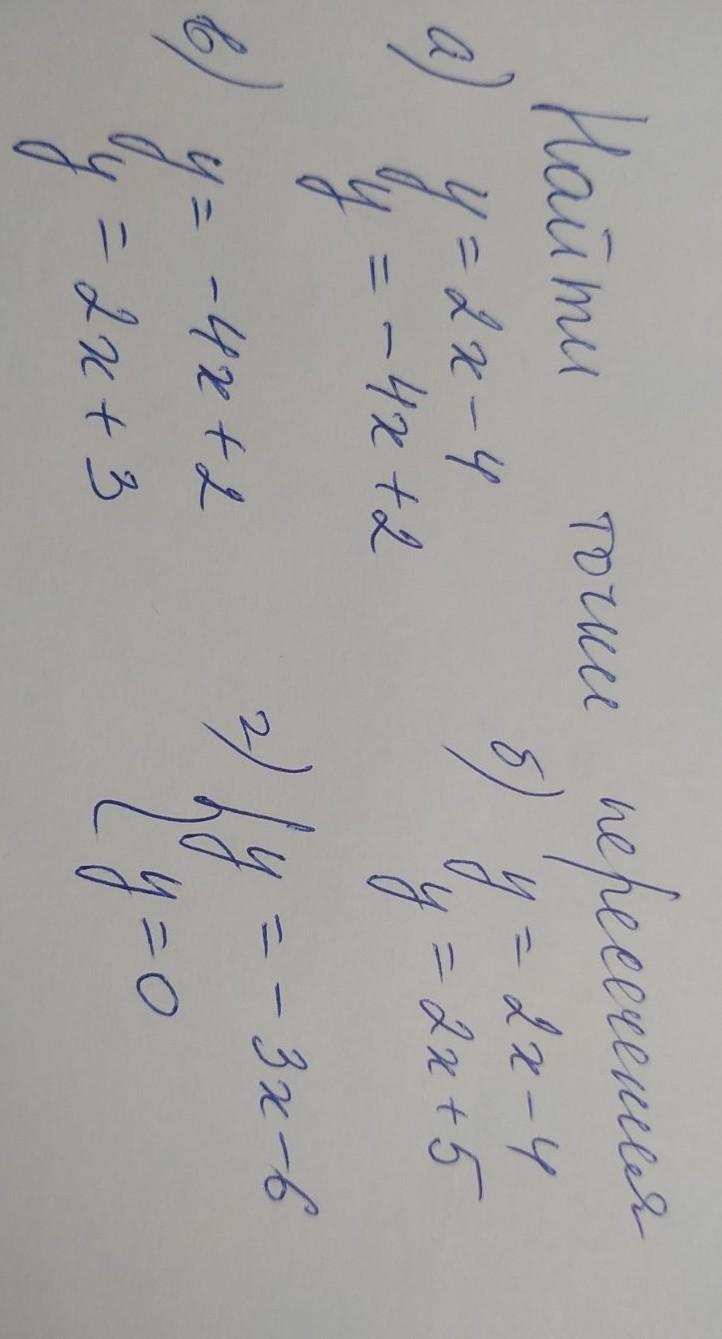 Найти точки пересечения
а) y = 2x - 4
y = -4x + 2
б) y = 2x - 4
y = 2x + 5
в) y = -4x + 2
y = 2x + 3
г) { y = -3x - 6
y = 0